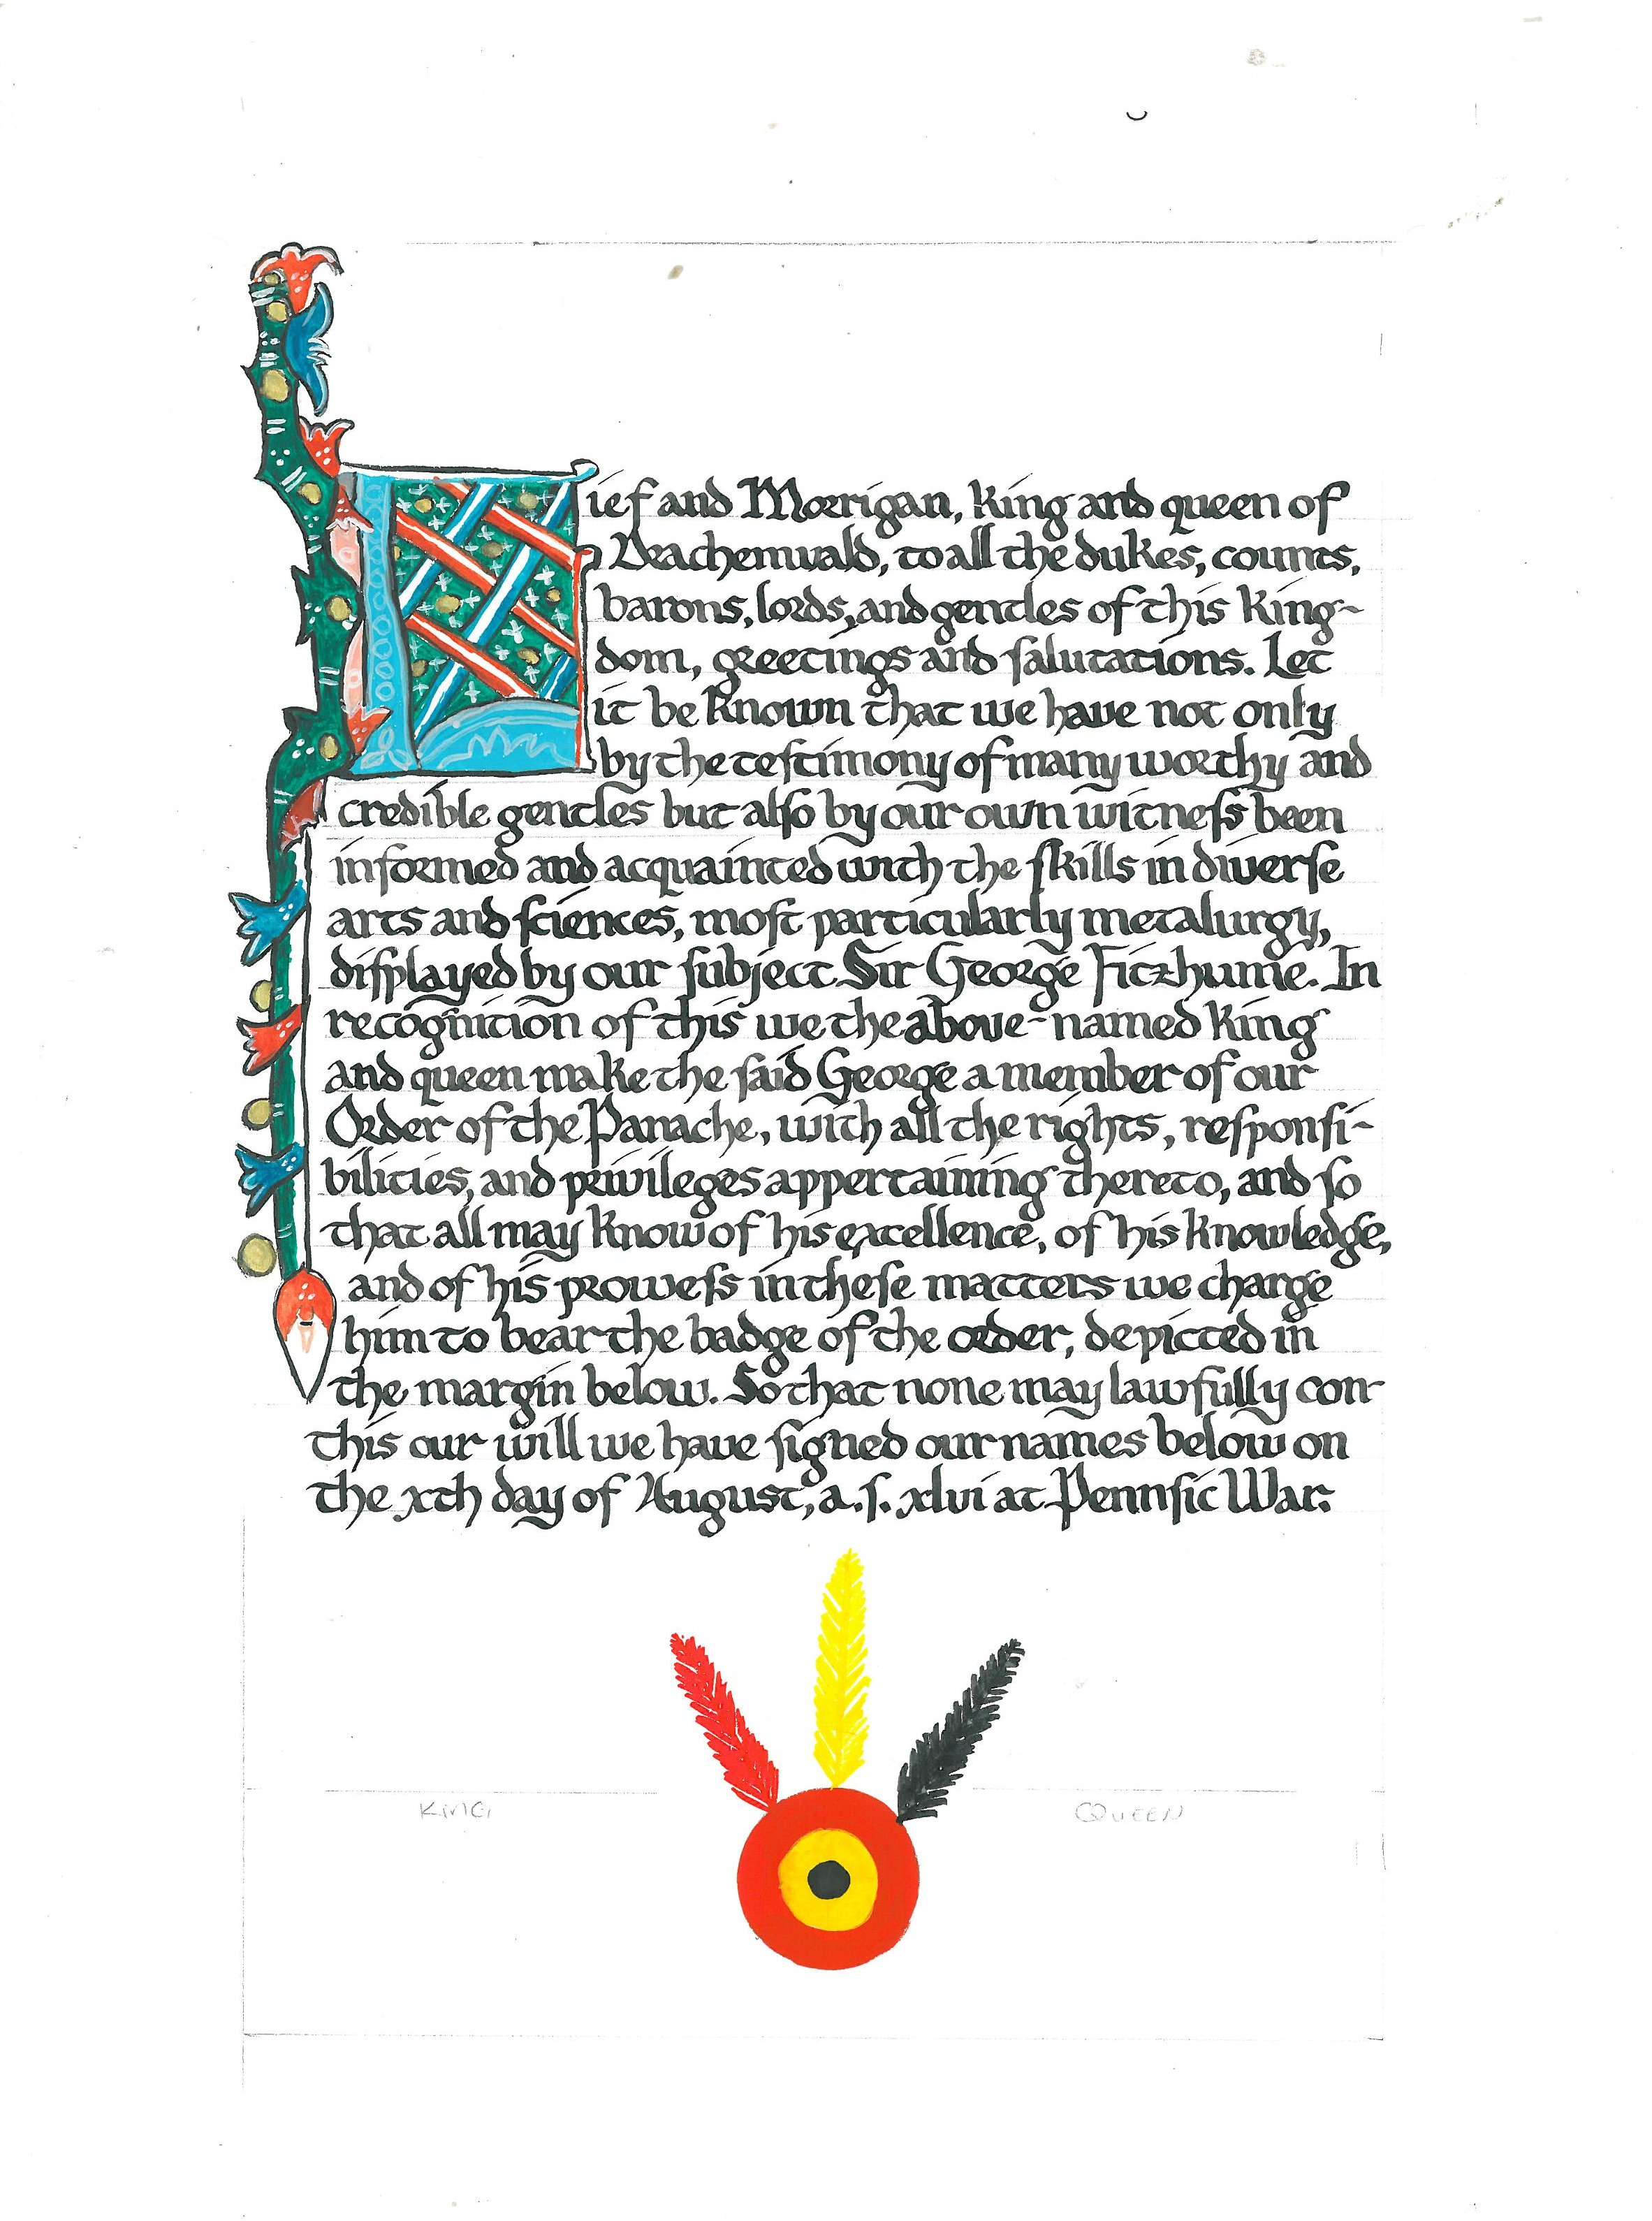 Lief and Morrigan, King and queen of
Drachenwald, to all the dukes, counts,
barons, lords, and gentles of this King-
dom, greetings and ſalutations. Let
it be Known that we have not only
by the teſtimony of many worthy and
credible gentles but alſo by our own witneſs been
informed and acquainted with the ſkills in diverſe
arts and ſciences, moſt particularly metalurgy,
diſplayed by our ſubject Sir George Fitzhume. In
recognition of this we the above-named King
and queen make the ſaid George a member of our
Order of the Panache, with all the rights, reſponſi-
bilities, and privileges appertaining thereto, and ſo
that all may Know of his excellence, of his Knowledge,
and of his proweſs in theſe matters we charge
him to bear the badge of the order, depicted in
the margin below. So that none may lawfully con-
this our will we have ſigned our names below on
the xth day of August, a.ſ. xlvi at Pennſic War.
KING
QUEEN